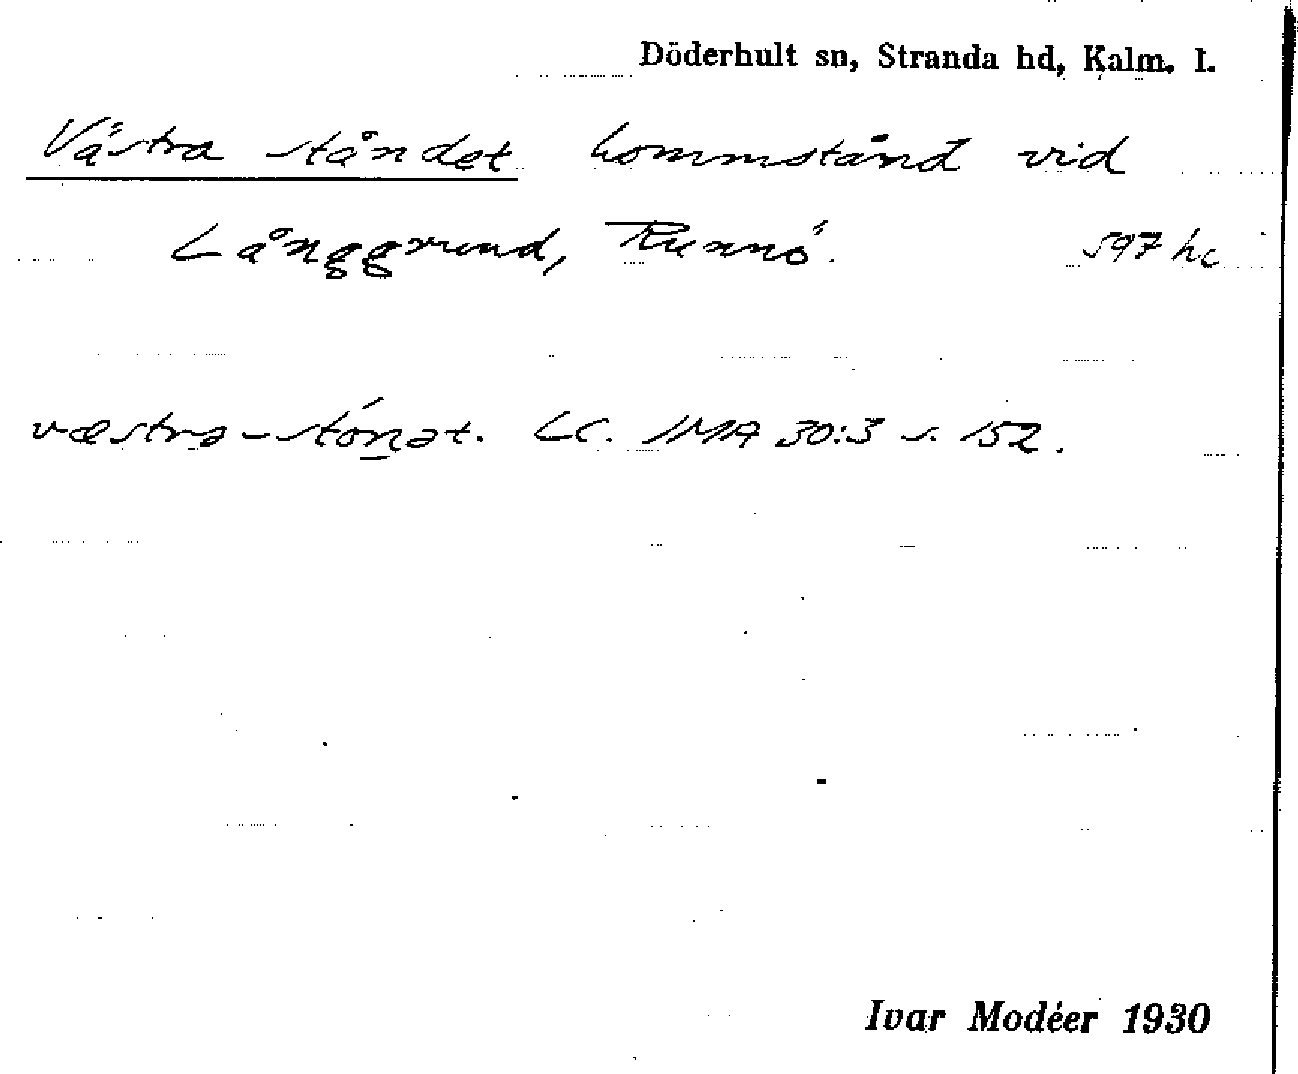 Döderhult sn, Stranda hd, Kalm. l.
Västra ståndet hommstånd vid
Långgrund, Runnö. 597 hc
væstrə-stónət. LC. IMA 30:3 s. 152.
Ivar Modéer 1930